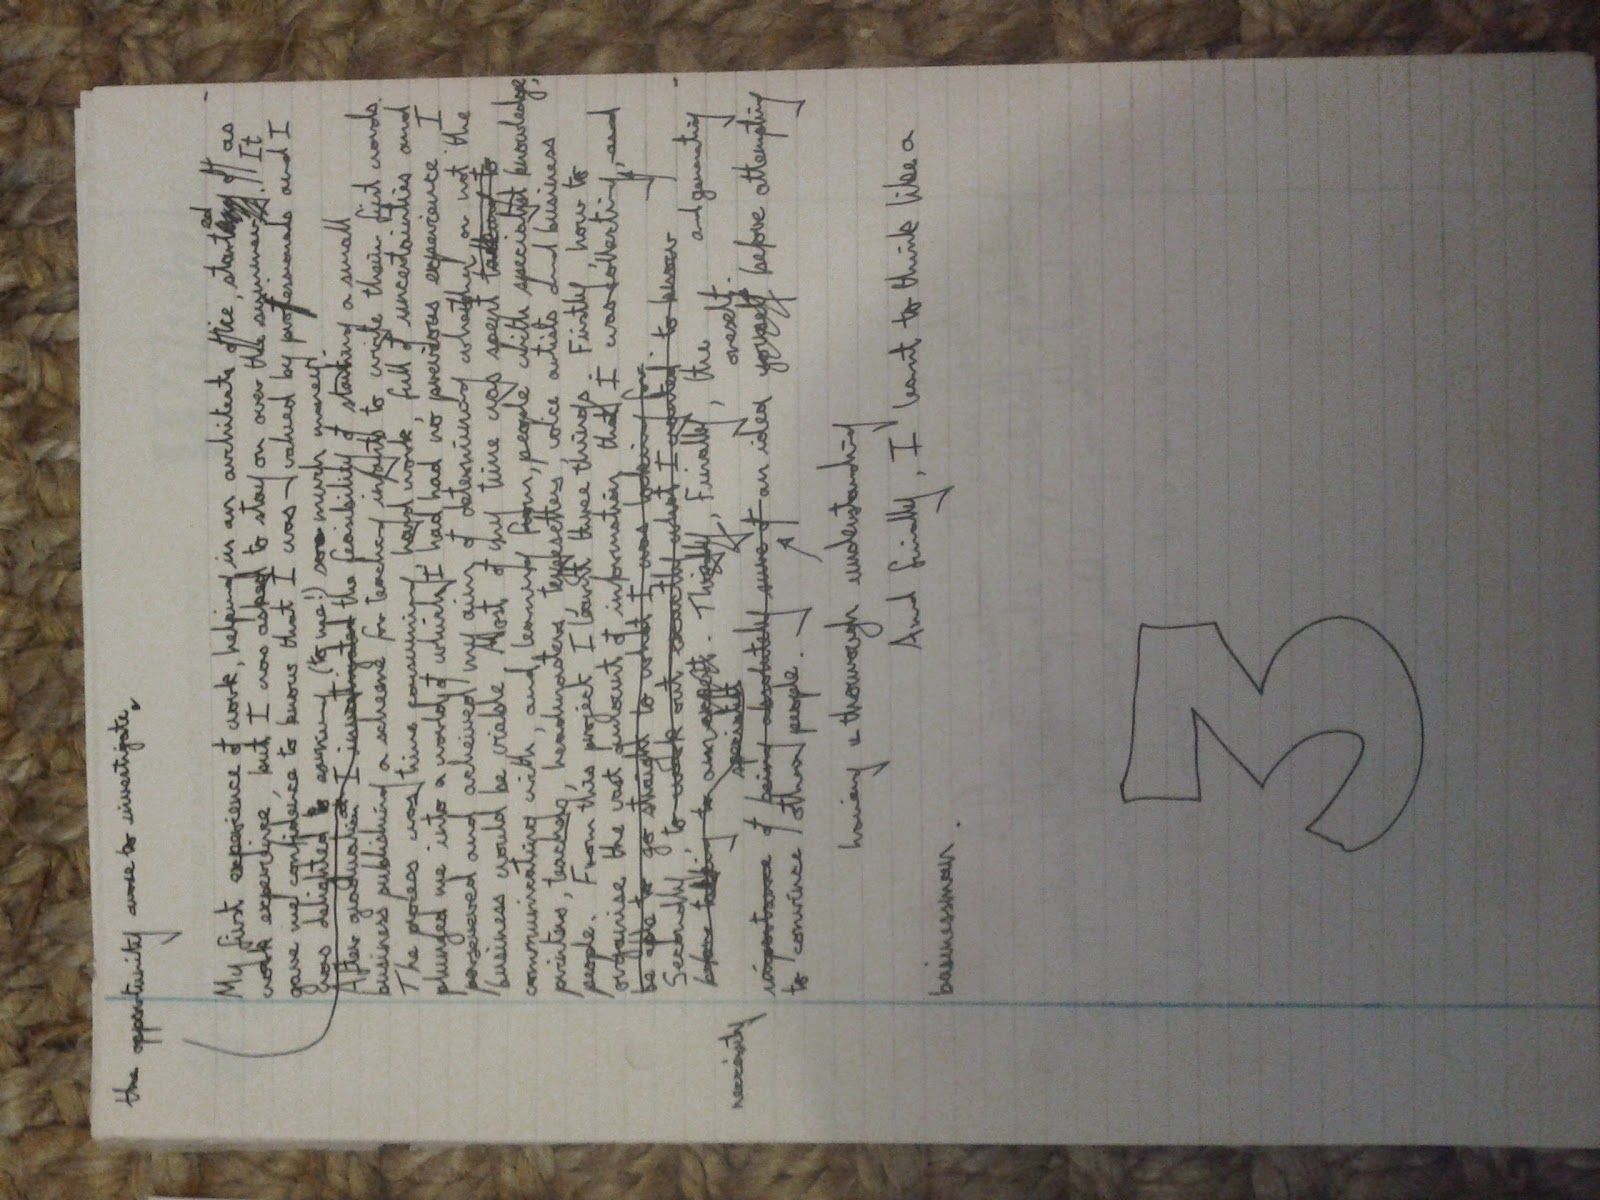 the opportunity arose to investigate
My first experience of work, helping in an architects office, started off as
work experience, but I was asked to stay on over the summer. It
gave me confidence to know that I was valued by professionals and I
was delighted to earn (to me!) so much money.
After graduation I investigated the feasibility of starting a small
business publishing a scheme for teaching infants to write their first words.
The process was time consuming, hard work, full of uncertainties and
plunged me into a world of which I had had no previous experience. I
persevered and acheived my aims of determining whether or not the
business would be viable. Most of my time was spent talking to
communicating with, and learning from, people with specialist knowledge;
printers, teachers, headmasters, typesetters, voice artists and business
people. From this project I learnt three things. Firstly, how to
organise the vast amount of information that I was collecting, and
be able to go straight to what I was looking for.
Secondly, to work out exactly what I wanted to know
before talking to an expert. Thirdly, Finally, the and generating
specialist onself.
necessity
importance of being absolutely sure of an idea yourself before attempting
to convince other people.
having a thorough understanding
And finally, I learnt to think like a
businessman.
3